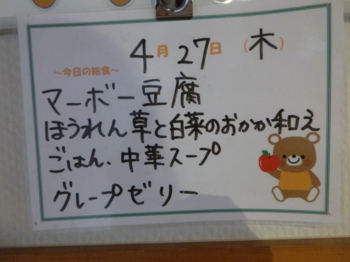 4月27日(木)
～今日の給食～
マーボー豆腐
ほうれん草と白菜のおかか和え
ごはん、中華スープ
グレープゼリー